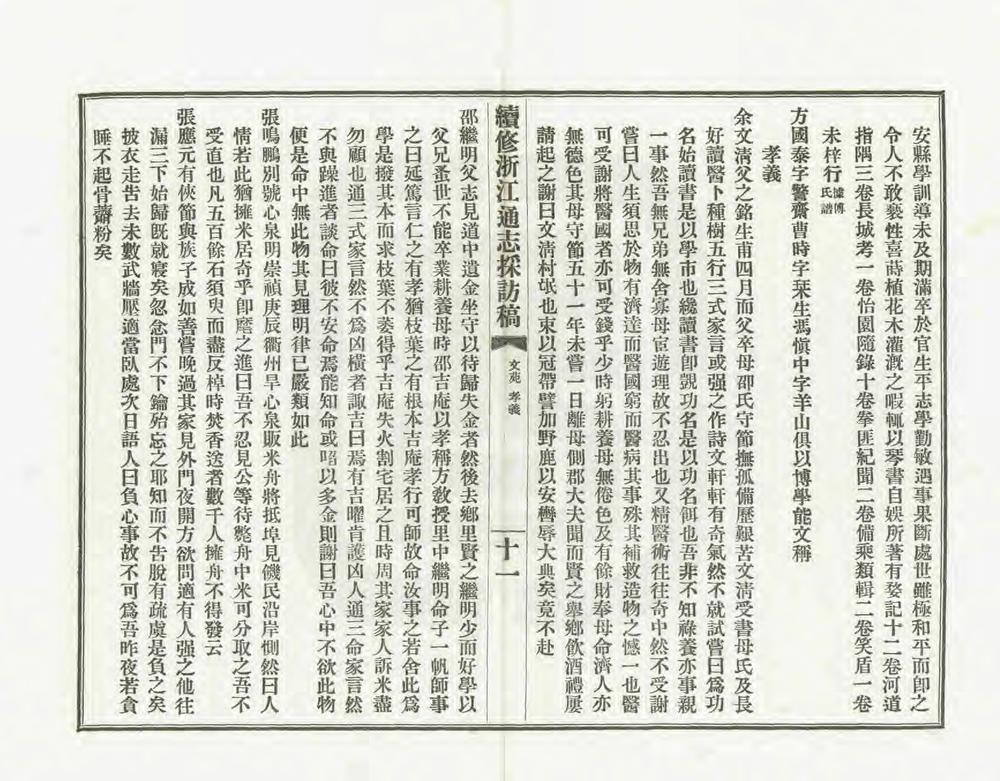 安縣學訓導未及期滿卒於官生平志學勤敏遇事果斷處世雖極和平而卽之
令人不敢褻性喜蒔植花木灌漑之暇輒以琴書自娛所著有婺記十二卷河道
指隅三卷長城考一卷怡園隨錄十卷拳匪紀聞二卷備乘類輯二卷笑盾一卷
未梓行據傅氏譜
方國泰字警齋曹時字琹生馮愼中字羊山俱以博學能文稱
孝義
余文淸父之銘生甫四月而父卒母卲氏守節撫孤備歷艱苦文淸受書母氏及長
好讀醫卜種樹五行三式家言或强之作詩文軒軒有奇氣然不就試嘗曰爲功
名始讀書是以學市也纔讀書卽覬功名是以功名餌也吾非不知祿養亦事親
一事然吾無兄弟無舍寡母宦遊理故不忍出也又精醫術往往奇中然不受謝
嘗曰人生須思於物有濟達而醫國窮而醫病其事殊其補救造物之憾一也醫
可受謝將醫國者亦可受錢乎少時躬耕養母無倦色及有餘財奉母命濟人亦
無德色其母守節五十一年未嘗一日離母側郡大夫聞而賢之舉鄉飮酒禮屢
請起之謝曰文淸村氓也束以冠帶譬加野鹿以安轡辱大典矣竟不赴
續修浙江通志採訪稿
文苑 孝義
十一
邵繼明父志見道中遺金坐守以待歸失金者然後去鄉里賢之繼明少而好學以
父兄蚤世不能卒業耕養母時邵吉庵以孝稱方敎授里中繼明命子一帆師事
之曰延篤言仁之有孝猶枝葉之有根本吉庵孝行可師故命汝事之若舍此爲
學是撥其本而求枝葉不萎得乎吉庵失火割宅居之且時周其家家人訴米盡
勿顧也通三式家言然不爲凶橫者諏吉曰焉有吉曜肯護凶人通三命家言然
不與躁進者談命曰彼不安命焉能知命或啗以多金則謝曰吾心中不欲此物
便是命中無此物其見理明律已嚴類如此
張鳴鵬別號心泉明崇禎庚辰衢州旱心泉販米舟將抵埠見饑民沿岸惻然曰人
情若此猶擁米居奇乎卽麾之進曰吾不忍見公等待斃舟中米可分取之吾不
受直也凡五百餘石須臾而盡反棹時焚香送者數千人擁舟不得發云
張應元有俠節與族子成如善嘗晚過其家見外門夜開方欲問適有人强之他往
漏三下始歸旣就寢矣忽念門不下鑰殆忘之耶知而不告脫有疏虞是負之矣
披衣走告去未數武牆壓適當臥處次日語人曰負心事故不可爲吾昨夜若貪
睡不起骨虀粉矣